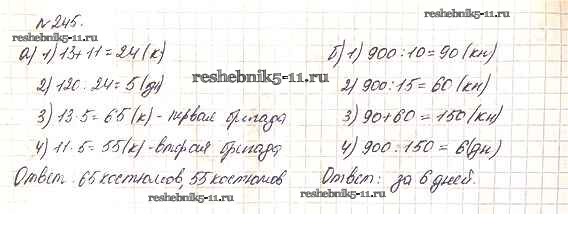 №245.
reshebnik5-11.ru
а) 1) 13+11=24(к)
2) 120:24=5(дн)
3) 13·5=65(к)-первая бригада
4) 11·5=55(к)-вторая бригада
Ответ: 65 костюмов, 55 костюмов
reshebnik5-11.ru
reshebnik5-11.ru
б) 1) 900:10=90(кн)
2) 900:15=60(кн)
3) 90+60=150(кн)
4) 900:150=6(дн)
Ответ: за 6 дней.
reshebnik5-11.ru
reshebnik5-11.ru